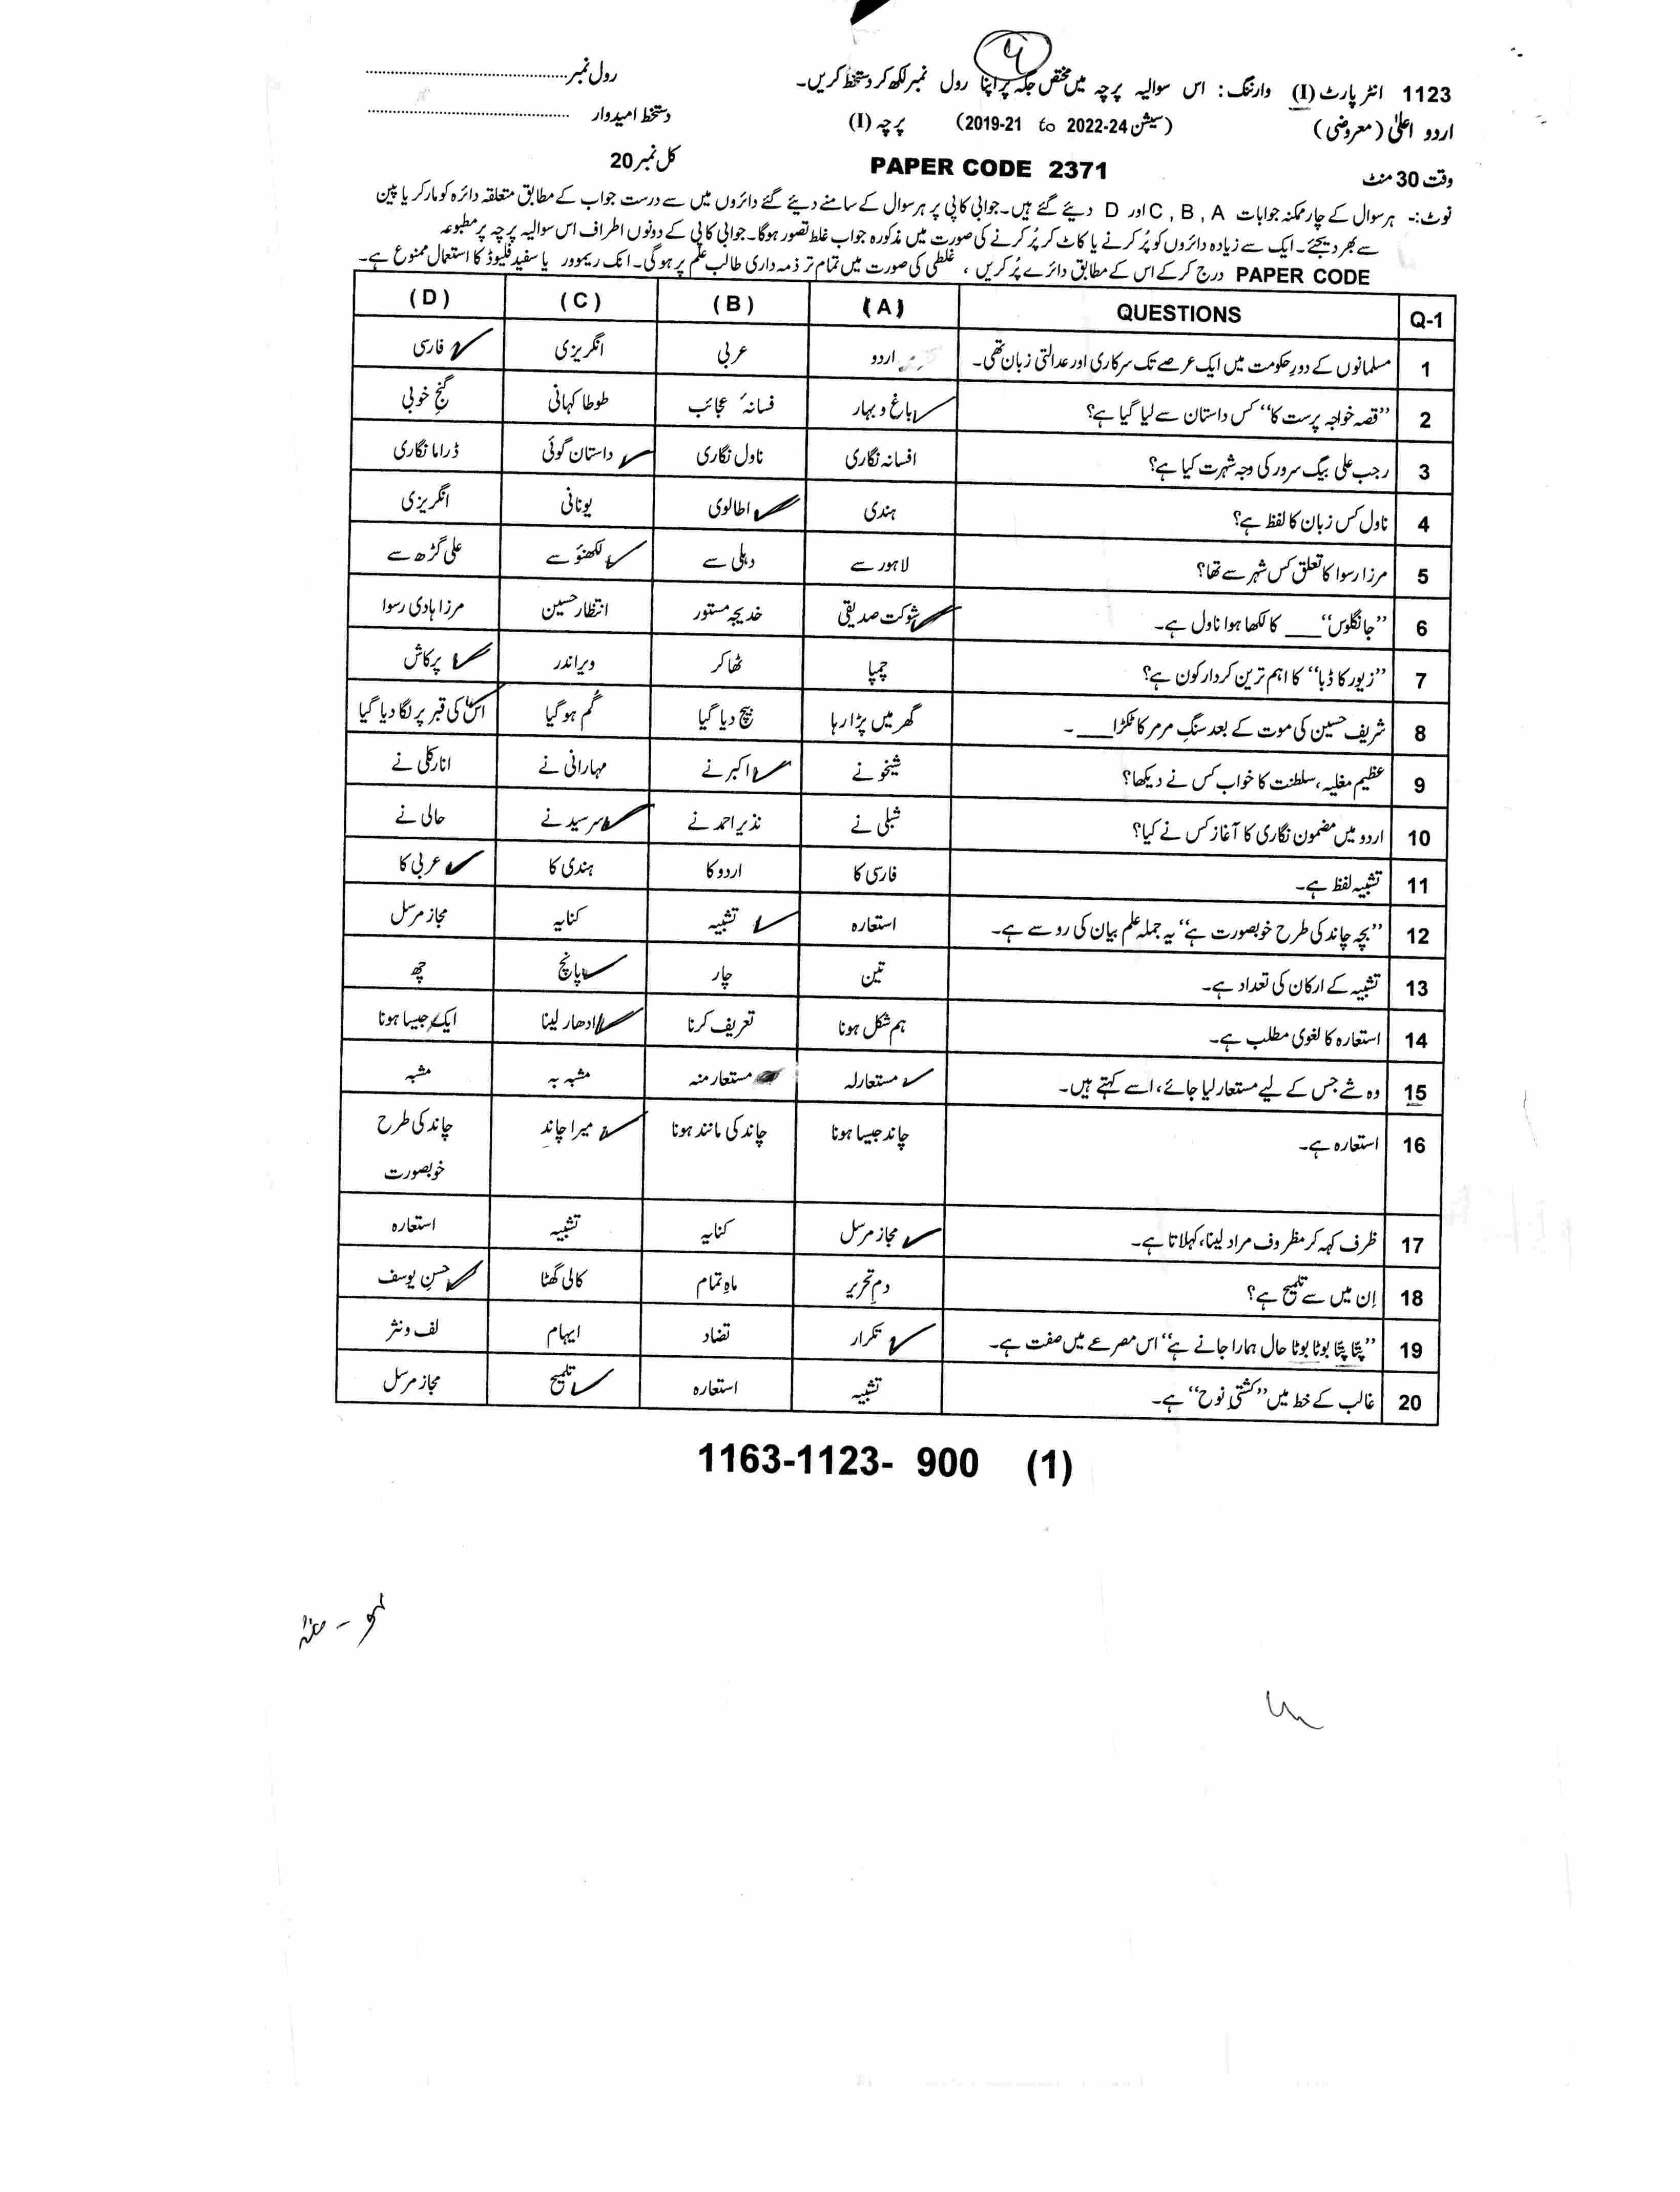 1123 انٹر پارٹ (I) وارننگ: اس سوالیہ پرچہ میں مختص جگہ پر اپنا رول نمبر لکھ کر دستخط کریں۔ رول نمبر
اردو اعلیٰ (معروضی) (سیشن 2019-21 to 2022-24) پرچہ (I) دستخط امیدوار
وقت 30 منٹ PAPER CODE 2371 کل نمبر 20
نوٹ:- ہر سوال کے چار ممکنہ جوابات A , B , C اور D دیئے گئے ہیں۔ جوابی کاپی پر ہر سوال کے سامنے دیئے گئے دائروں میں سے درست جواب کے مطابق متعلقہ دائرہ کو مارکر یا پین
سے بھر دیجئے۔ ایک سے زیادہ دائروں کو پُر کرنے یا کاٹ کر پُر کرنے کی صورت میں مذکورہ جواب غلط تصور ہوگا۔ جوابی کاپی کے دونوں اطراف اس سوالیہ پرچہ پر مطبوعہ
PAPER CODE درج کر کے اس کے مطابق دائرے پُر کریں ، غلطی کی صورت میں تمام تر ذمہ داری طالب علم پر ہوگی۔ انک ریموور یا سفید فلیوڈ کا استعمال ممنوع ہے۔
Q-1 QUESTIONS (A) (B) (C) (D)
1 مسلمانوں کے دورِ حکومت میں ایک عرصے تک سرکاری اور عدالتی زبان تھی۔ اردو عربی انگریزی فارسی
2 ”قصہ خواجہ پرست کا“ کس داستان سے لیا گیا ہے؟ باغ و بہار فسانۂ عجائب طوطا کہانی گنجِ خوبی
3 رجب علی بیگ سرور کی وجہ شہرت کیا ہے؟ افسانہ نگاری ناول نگاری داستان گوئی ڈراما نگاری
4 ناول کس زبان کا لفظ ہے؟ ہندی اطالوی یونانی انگریزی
5 مرزا رسوا کا تعلق کس شہر سے تھا؟ لاہور سے دہلی سے لکھنؤ سے علی گڑھ سے
6 ”جانگلوس“ ___ کا لکھا ہوا ناول ہے۔ شوکت صدیقی خدیجہ مستور انتظار حسین مرزا ہادی رسوا
7 ”زیور کا ڈبا“ کا اہم ترین کردار کون ہے؟ چمپا ٹھاکر ویراندر پرکاش
8 شریف حسین کی موت کے بعد سنگِ مرمر کا ٹکڑا ___ ۔ گھر میں پڑا رہا بیچ دیا گیا گُم ہو گیا اس کی قبر پر لگا دیا گیا
9 عظیم مغلیہ، سلطنت کا خواب کس نے دیکھا؟ شیخو نے اکبر نے مہارانی نے انارکلی نے
10 اردو میں مضمون نگاری کا آغاز کس نے کیا؟ شبلی نے نذیر احمد نے سرسید نے حالی نے
11 تشبیہ لفظ ہے۔ فارسی کا اردو کا ہندی کا عربی کا
12 ”بچہ چاند کی طرح خوبصورت ہے“ یہ جملہ علم بیان کی رو سے ہے۔ استعارہ تشبیہ کنایہ مجاز مرسل
13 تشبیہ کے ارکان کی تعداد ہے۔ تین چار پانچ چھ
14 استعارہ کا لغوی مطلب ہے۔ ہم شکل ہونا تعریف کرنا ادھار لینا ایک جیسا ہونا
15 وہ شے جس کے لیے مستعار لیا جائے، اسے کہتے ہیں۔ مستعارلہ مستعار منہ مشبہ بہ مشبہ
16 استعارہ ہے۔ چاند جیسا ہونا چاند کی مانند ہونا میرا چاند چاند کی طرح
خوبصورت
17 ظرف کہہ کر مظروف مراد لینا، کہلاتا ہے۔ مجاز مرسل کنایہ تشبیہ استعارہ
18 اِن میں سے تلمیح ہے؟ دمِ تحریر ماہِ تمام کالی گھٹا حسنِ یوسف
19 ”پتّا پتّا بوٹا بوٹا حال ہمارا جانے ہے“ اس مصرعے میں صفت ہے۔ تکرار تضاد ایہام لف و نشر
20 غالب کے خط میں ”کشتیِ نوح“ ہے۔ تشبیہ استعارہ تلمیح مجاز مرسل
1163-1123- 900 (1)